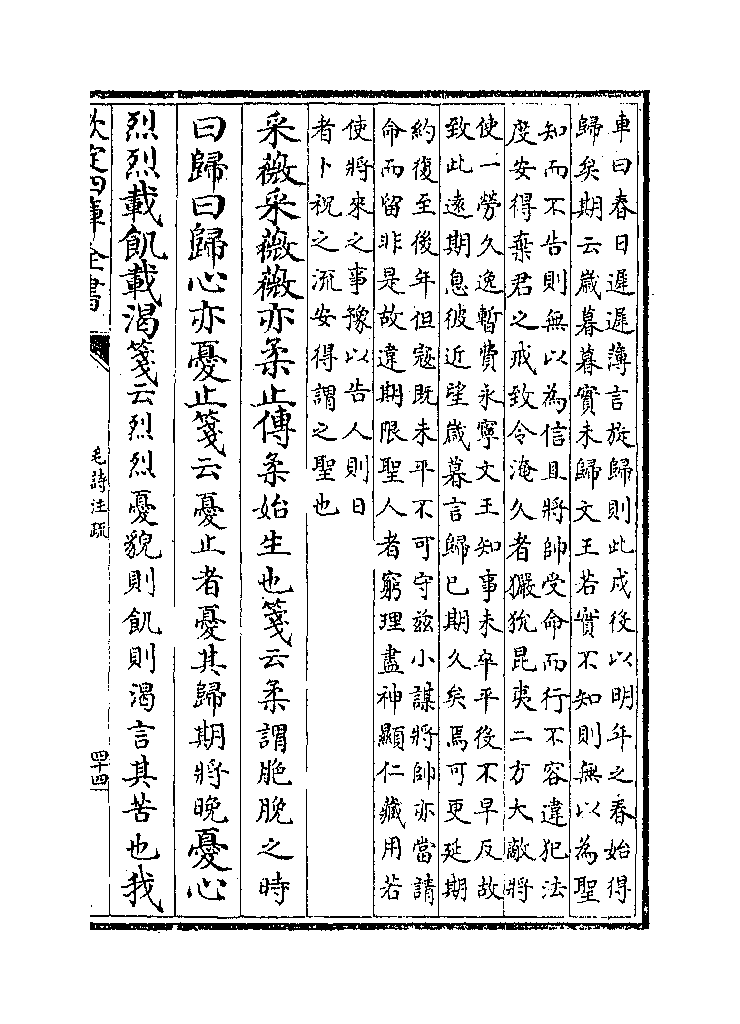 車曰春日遲遲薄言旋歸則此戍役以明年之春始得
歸矣期云嵗暮暮實未歸文王若實不知則無以為聖
知而不告則無以為信且將帥受命而行不容違犯法
度安得棄君之戒致令淹久者玁狁昆夷二方大敵將
使一勞久逸暫費永寧文王知事未卒平役不早反故
致此遠期息彼近望嵗暮言歸已期久矣焉可更延期
約復至後年但寇既未平不可守兹小謀將帥亦當請
命而留非是故違期限聖人者窮理盡神顯仁藏用若
使將來之事豫以告人則日
者卜祝之流安得謂之聖也
采薇采薇薇亦柔止傳柔始生也箋云柔謂脃脕之時
曰歸曰歸心亦憂止箋云憂止者憂其歸期將晚憂心
烈烈載飢載渴箋云烈烈憂貌則飢則渴言其苦也我
欽定四庫全書
毛詩注疏
四十四